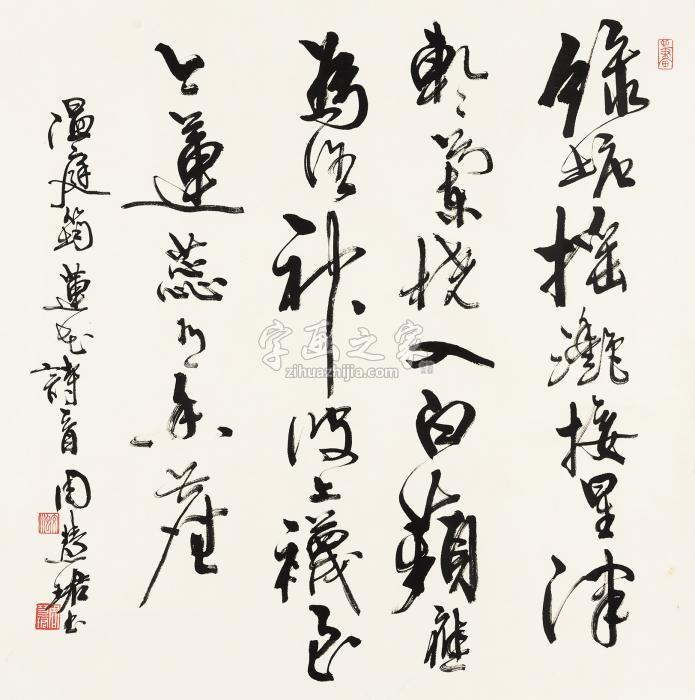 綠塘摇灎接星津
軋々蘭橈入白蘋應
為洛神波上襪至
今蓮蕊有香塵
温庭筠蓮花詩首 周慧珺书
字画之家
zihuazhijia.com